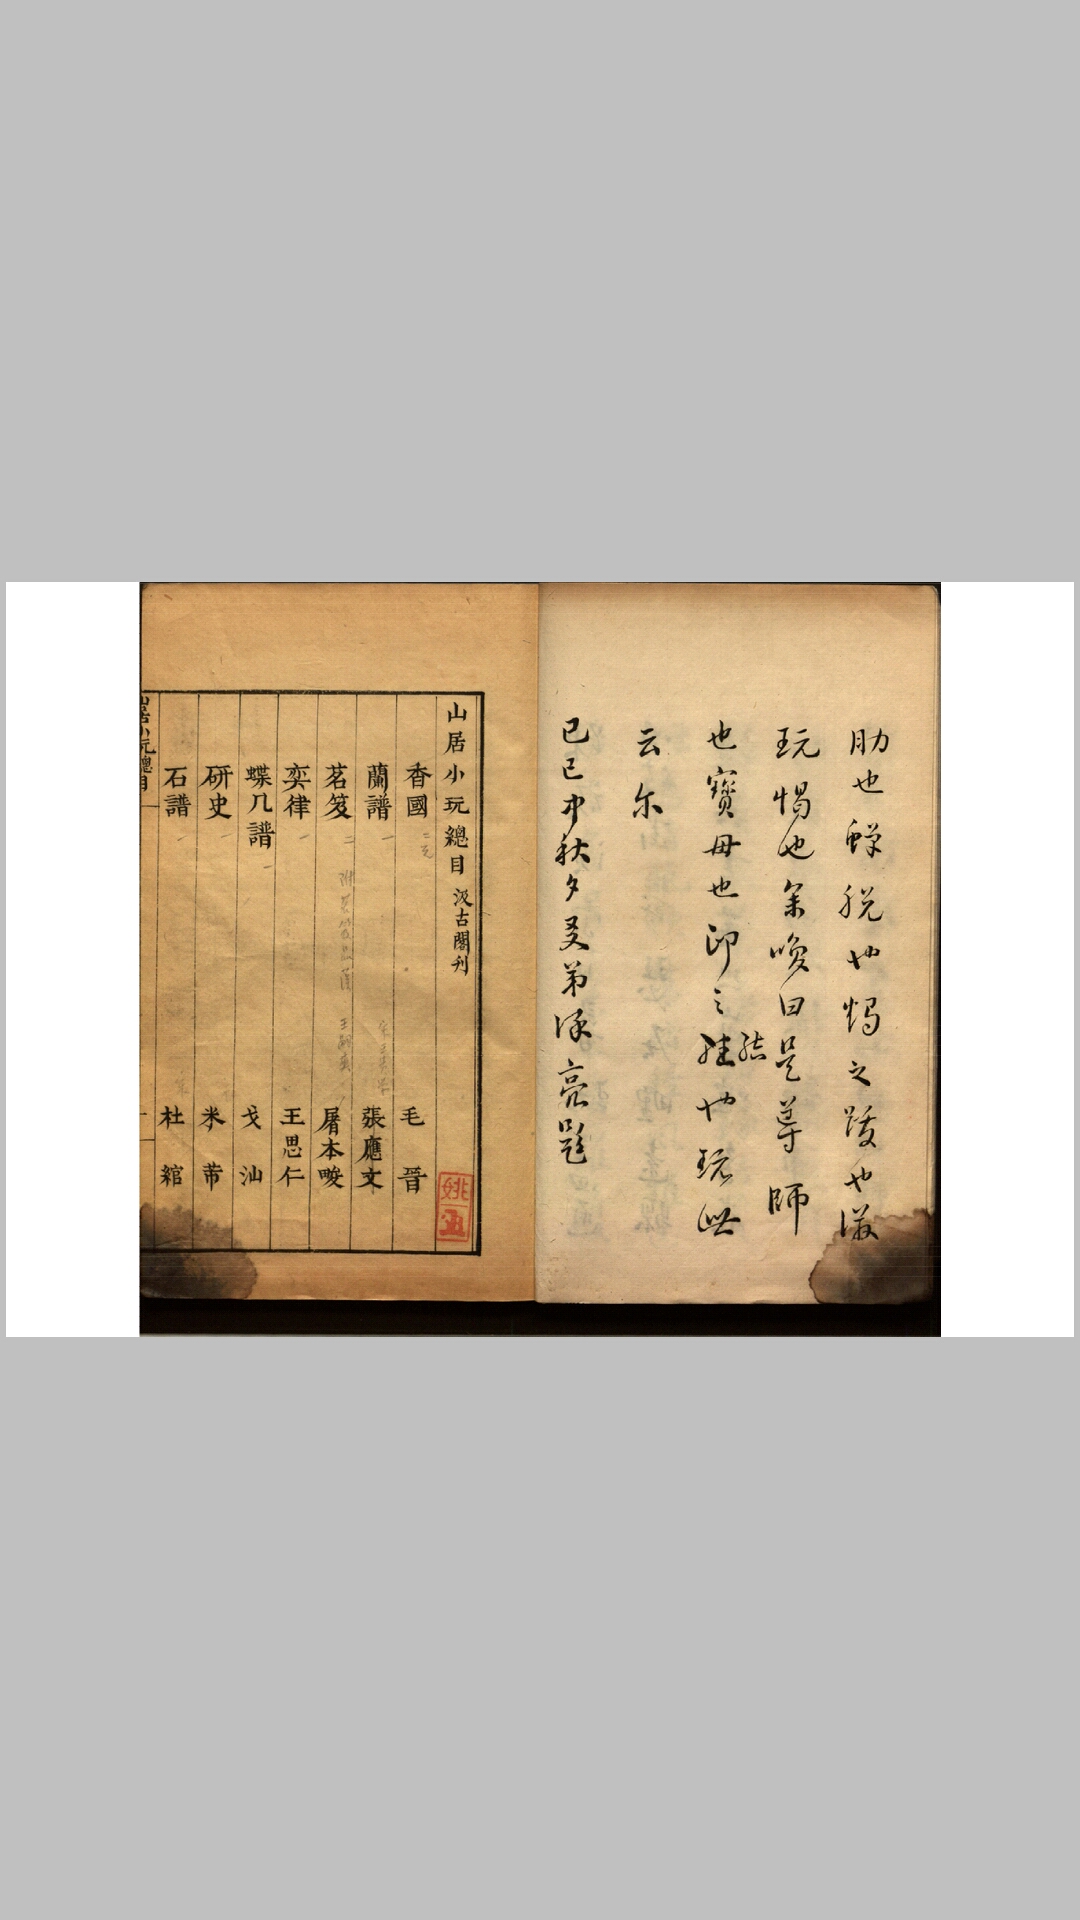 肋也蟬脫也燭之跋也微
玩惕也余喚曰是導師
也寶母也印之結也玩此
云尔
己巳中秋夕友弟孫亮題
山居小玩總目 汲古閣刊
香國 毛晉
蘭譜 一 張應文
茗笈 二 屠本畯
奕律 一 王思仁
蝶几譜 一 戈汕
硏史 一 米芾
石譜 一 杜綰
山居小玩總目 一